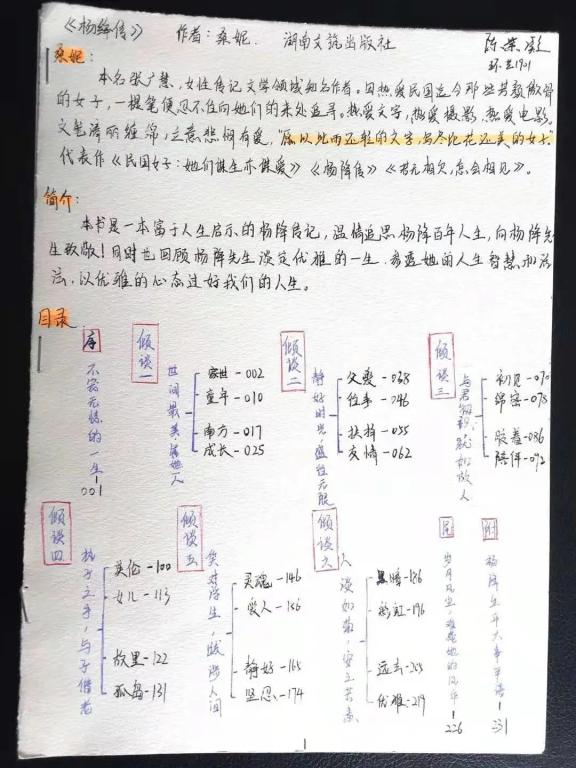 《杨绛传》 作者:桑妮. 湖南文艺出版社
环艺1901
桑妮:
本名张广慧,女性传记文学领域知名作者。因热爱民国迄今那些芳馥微骨
的女子,一提笔便忍不住向她们的来处追寻。热爱文字,热爱摄影,热爱电影,
文笔清丽缠绵,立意悲悯有爱,"愿以比雨还轻的文字,写尽比花还美的女子"
代表作《民国女子:她们谋生亦谋爱》《杨绛传》《若无相欠,怎会相见》。
简介:
本书是一本富于人生启示的杨绛传记,温情追思杨绛百年人生,向杨绛先
生致敬!同时也回顾杨绛先生淡定优雅的一生.参透她的人生智慧和活
法,以优雅的心态过好我们的人生。
目录
序
不容无情的一生-001
倾谈一
世间最美是她人
家世-002
童年-010
南方-017
成长-025
倾谈二
静好时光,盛佐无殷
父爱-038
往事-046
扶持-055
友情-062
倾谈三
与君初识,就如故人
初见-070
绵密-078
胶着-086
陪伴-092
倾谈四
执子之手,与子偕老
英伦-100
女儿-113
故里-122
孤岛-131
倾谈五
笑对浮生,跋涉人间
灵魂-146
爱人-156
静好-165
坚忍-174
倾谈六
人淡如菊,安之若素
黑暗-186
彩虹-196
远去-205
优雅-219
尾
岁月风尘,难掩她的风华-226
附
杨绛生平大事年谱-231